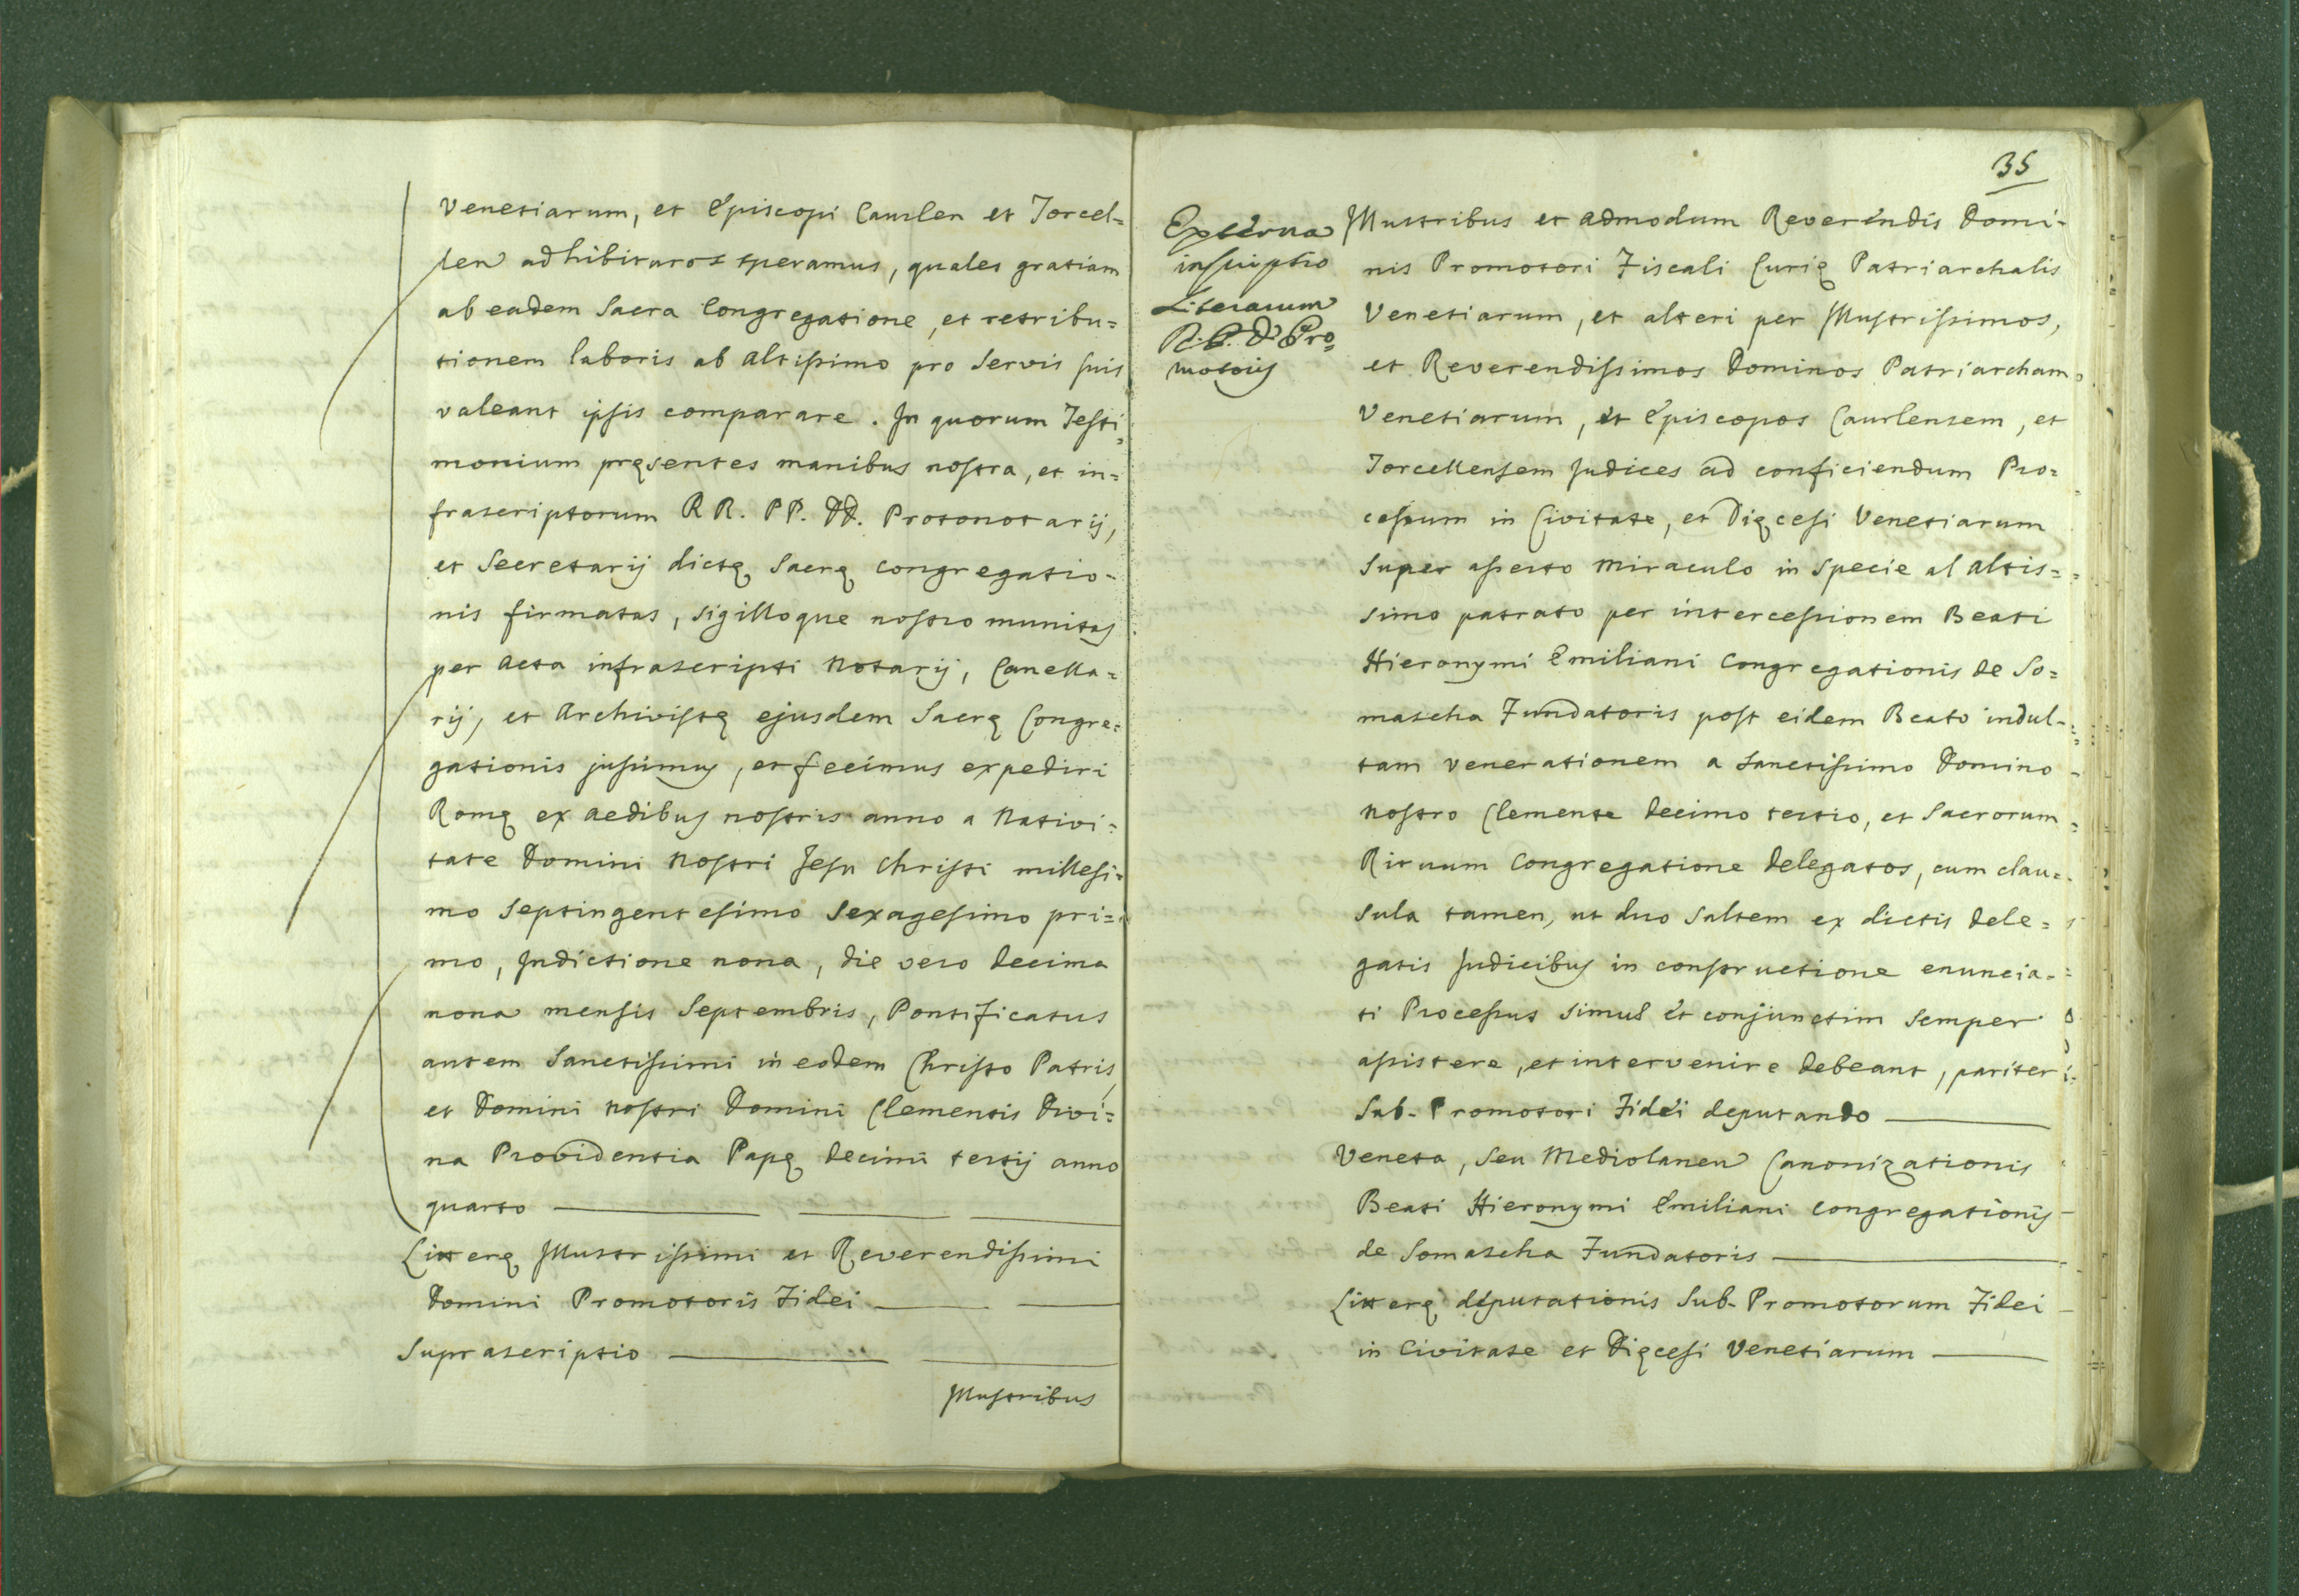 Venetiarum, et Episcopi Caurlen et Torcel=
len adhibituros speramus, quales gratiam
ab eadem Sacra Congregatione, et retribu=
tionem laboris ab Altissimo pro Servis suis
valeant ipsis comparare. In quorum Testi=
monium pręsentes manibus nostra, et in=
frascriptorum RR. PP. DD. Protonotarij,
et Secretarij dictę Sacrę Congregatio-
nis firmatas, sigilloque nostro munitas
per Acta infrascripti Notarij, Cancella=
rij, et Archivistę ejusdem Sacrę Congre=
gationis jussimus, et fecimus expediri
Romę ex aedibus nostris anno a Nativi=
tate Domini Nostri Jesu Christi millesi=
mo Septingentesimo Sexagesimo pri=
mo, Indictione nona, die vero decima
nona mensis Septembris, Pontificatus
autem Sanctissimi in eodem Christo Patris,
et Domini nostri Domini Clementis Divi=
na Providentia Papę decimi tertij anno
quarto
Litterę Illustrissimi et Reverendissimi
Domini Promotoris Fidei
Suprascriptio
Illustribus
35
Externa
inscriptio
Literarum
R. P. D. Pro=
motoris
Illustribus et admodum Reverendis Domi-
nis Promotori Fiscali Curię Patriarchalis
Venetiarum, et alteri per Illustrissimos,
et Reverendissimos Dominos Patriarcham
Venetiarum, et Episcopos Caurlensem, et
Torcellensem Judices ad conficiendum Pro=
cessum in Civitate, et Dięcesi Venetiarum
super asserto Miraculo in specie al Altis=
simo patrato per intercessionem Beati
Hieronymi Emiliani Congregationis de So=
mascha Fundatoris post eidem Beato indul-
tam venerationem a Sanctissimo Domino
Nostro Clemente decimo tertio, et Sacrorum
Rituum Congregatione delegatos, cum clau=
sula tamen, ut duo saltem ex dictis dele=
gatis Judicibus in constructione enuncia-
ti Processus simul et conjunctim semper
assistere, et intervenire debeant, pariter
Sub-Promotori Fidei deputando
Veneta, seu Mediolanen Canonizationis
Beati Hieronymi Emiliani Congregationis
de Somascha Fundatoris
Litterę deputationis Sub-Promotorum Fidei
in Civitate et Dięcesi Venetiarum